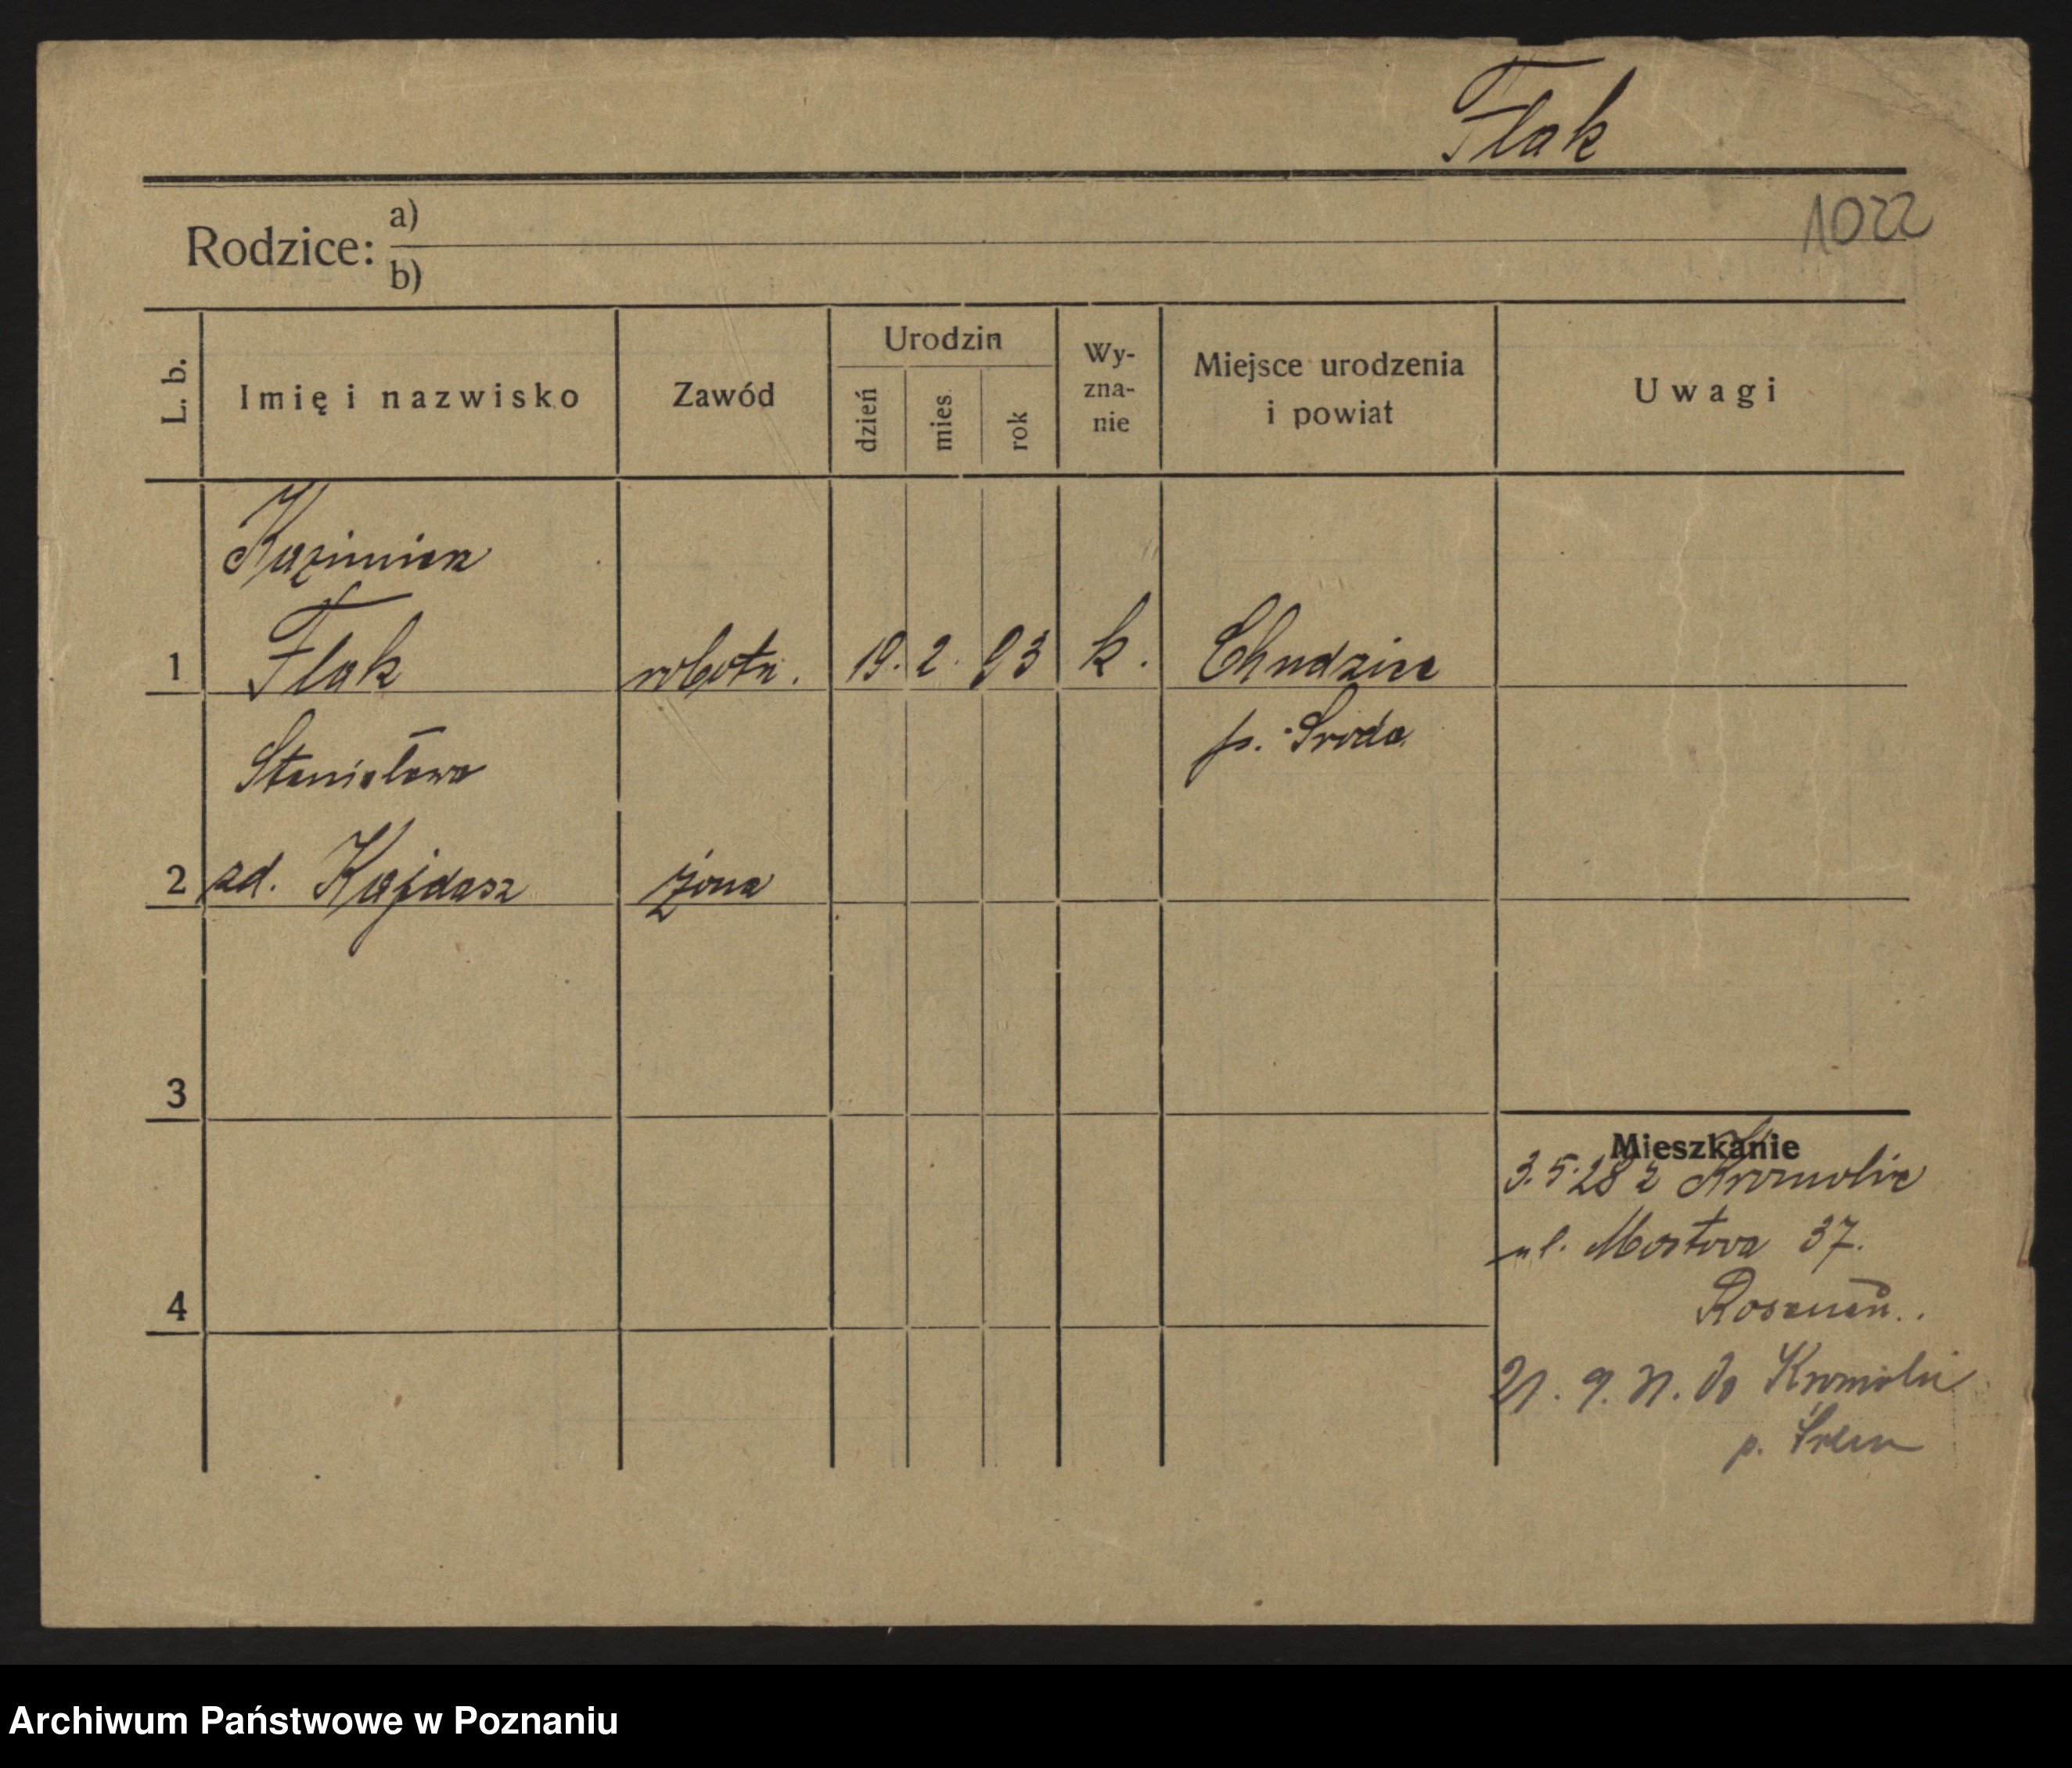 Flak
1022
Rodzice: a)
b)
L. b.
Imię i nazwisko
Zawód
Urodzin
dzień
mies.
rok
Wy-
zna-
nie
Miejsce urodzenia
i powiat
Uwagi
Kazimierz
1 Flak robotn. 19. 2. 93 k. Chudzice
p. Środa
Stanisława
2 zd. Kajdasz żona
3
4
Mieszkanie
3.5.28 z Kromolic
ul. Mostowa 37.
21. 9. 31. do Kromolic
p. Śrem
Archiwum Państwowe w Poznaniu